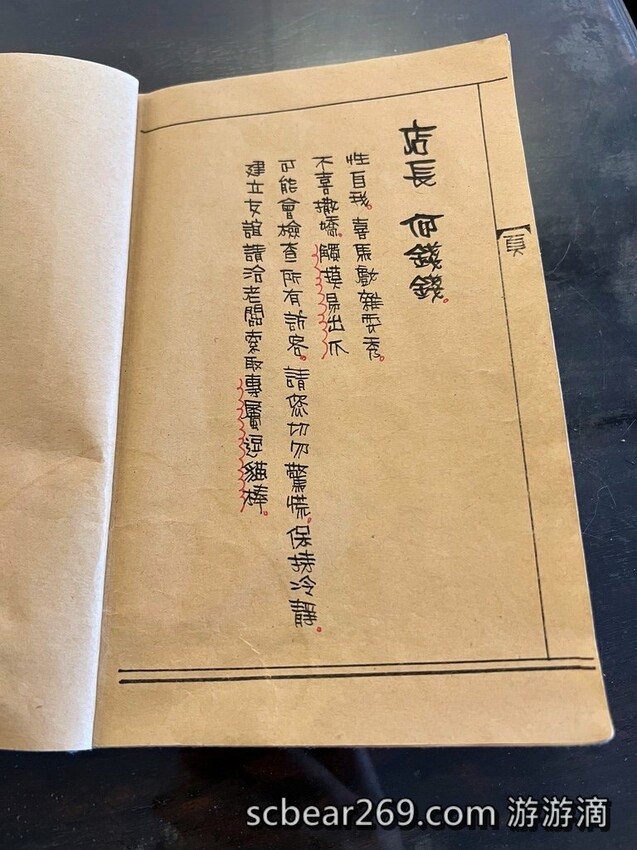 店長 何錢錢。
性自我。喜馬戲雜耍秀。
不喜撒嬌。觸摸易出爪
可能會檢查所有訪客。請您切勿驚慌。保持冷靜。
建立友誼請洽老闆索取專屬逗貓棒。
【頁
scbear269.com 游游滴